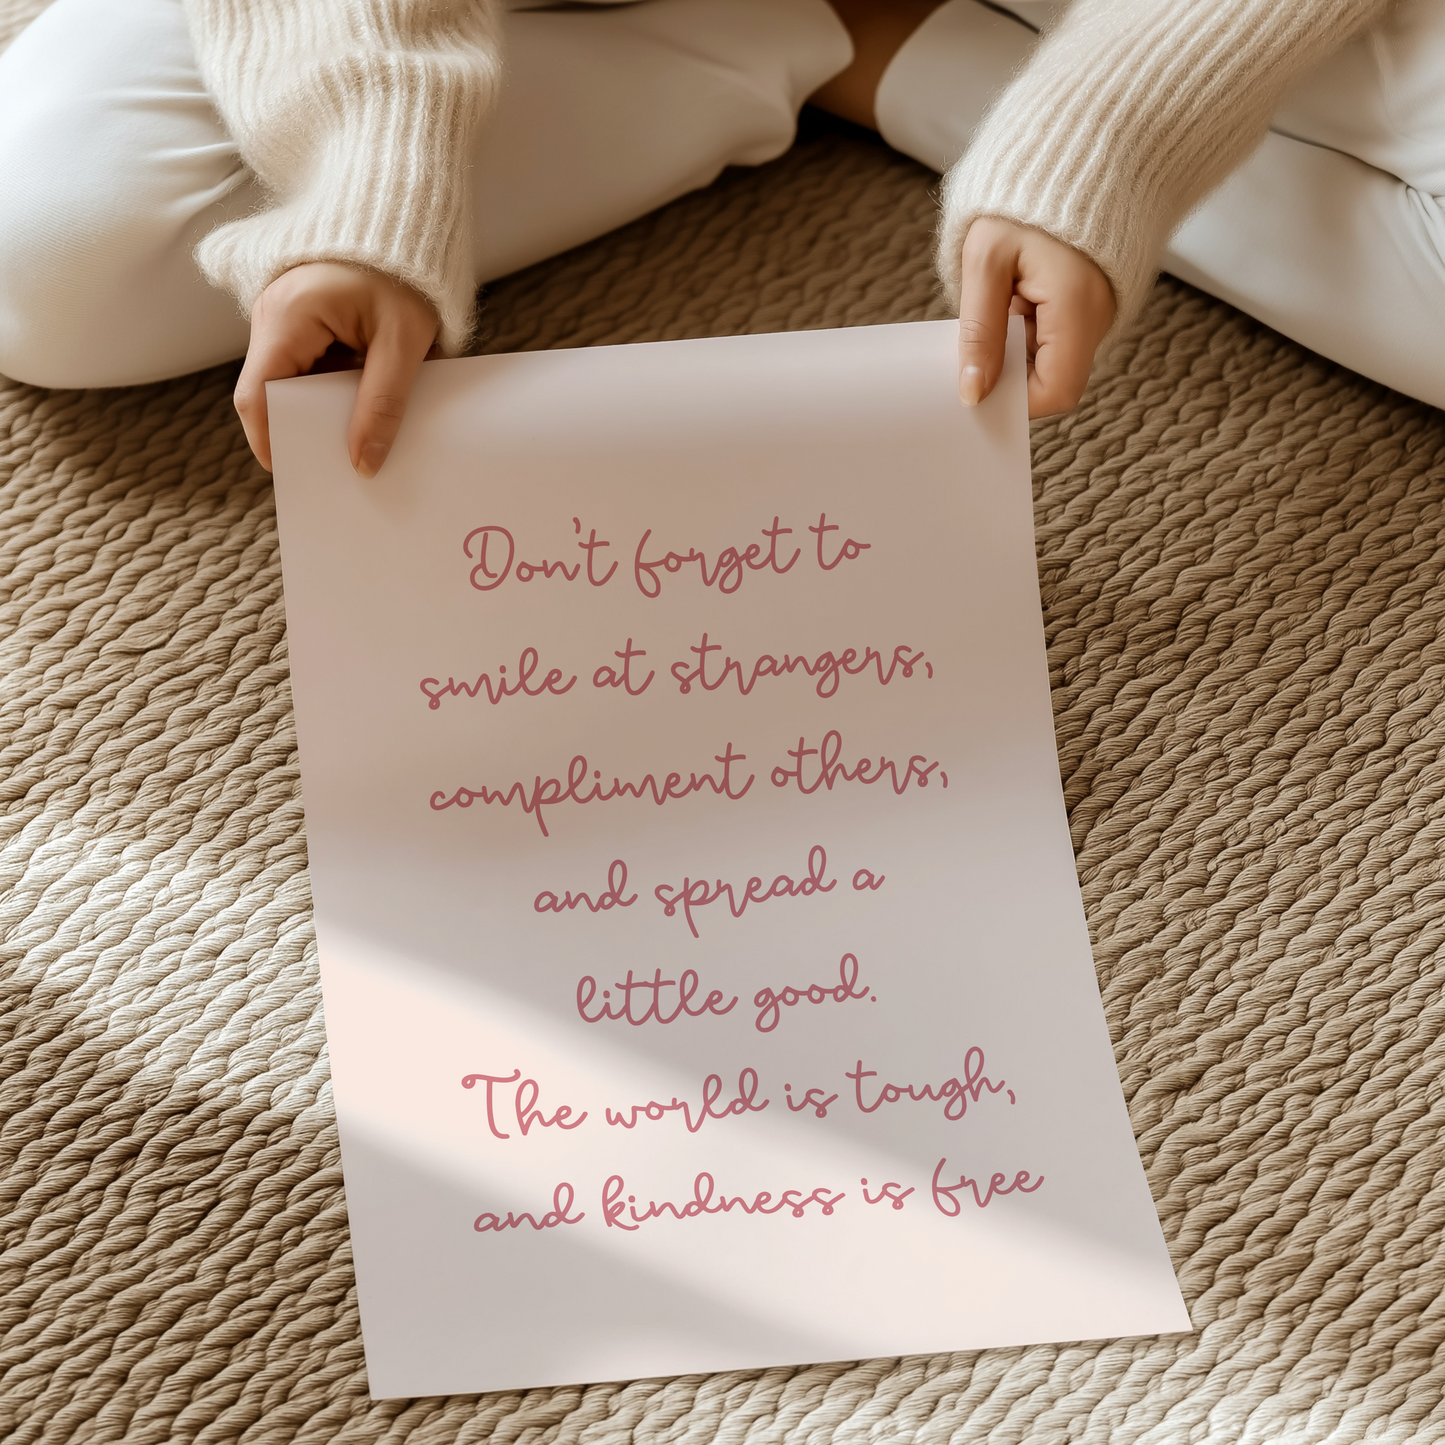 Don't forget to
smile at strangers,
compliment others,
and spread a
little good.
The world is tough,
and kindness is free